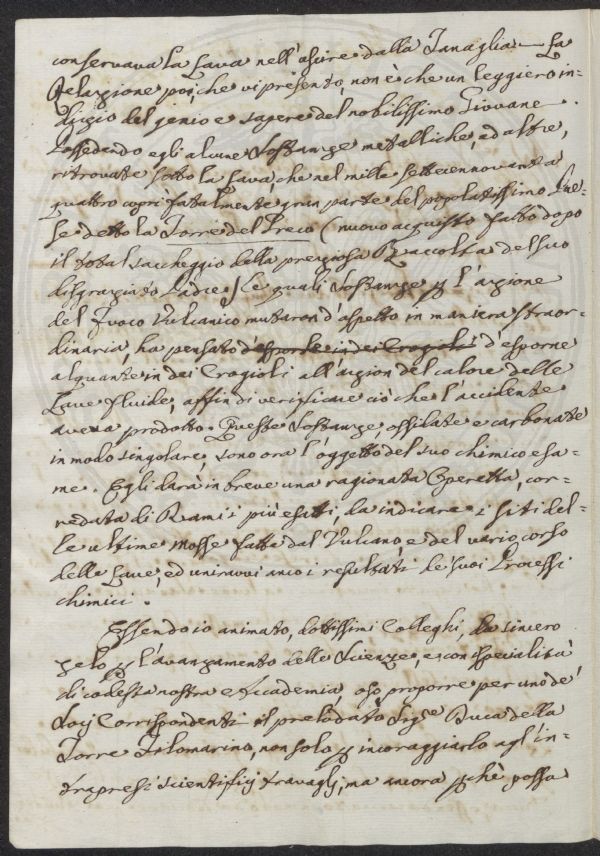 conservava la Lava nell'uscire dalla Tanaglia — La
Relazione poi, che vi presento, non è che un leggiero in-
dizio del genio e sapere del nobilissimo Giovane.
Possedendo egli alcune Sostanze metalliche, ed altre,
ritrovate sotto la Lava, che nel mille settecennovanta
quattro coprì fatalmente gran parte del popolatissimo Pae-
se detto la Torre del Greco (nuovo acquisto fatto dopo
il total saccheggio della preziosa Raccolta del suo
disgraziato Padre) le quali Sostanze p l'azione
del Fuoco Vulcanico mutaron d'aspetto in maniera straor-
dinaria, ha pensato d'esporle in dei Crogioli d'esporne
alquante in dei Crogioli all'azion del calore delle
Lave fluide, affin di verificare ciò che l'accidente
aveva prodotto. Queste Sostanze ossidate e carbonate
in modo singolare, sono ora l'oggetto del suo chimico esa-
me. Egli darà in breve una ragionata Operetta, cor-
redata di Rami i più esatti, da indicare i siti del-
le ultime mosse fatte dal Vulcano, e del vario corso
delle Lave, ed uniravvi anco i resultati de' suoi Processi
chimici.
Essendo io animato, dottissimi Colleghi, da sincero
zelo p l'avanzamento delle Scienze, e con specialità
di codesta nostra Accademia, oso proporre per uno de'
Socj Corrispondenti il prelodato Sig.e Duca della
Torre Filomarino, non solo p incoraggiarlo agl'in-
trapresi scientifici travagli, ma ancora pchè possa